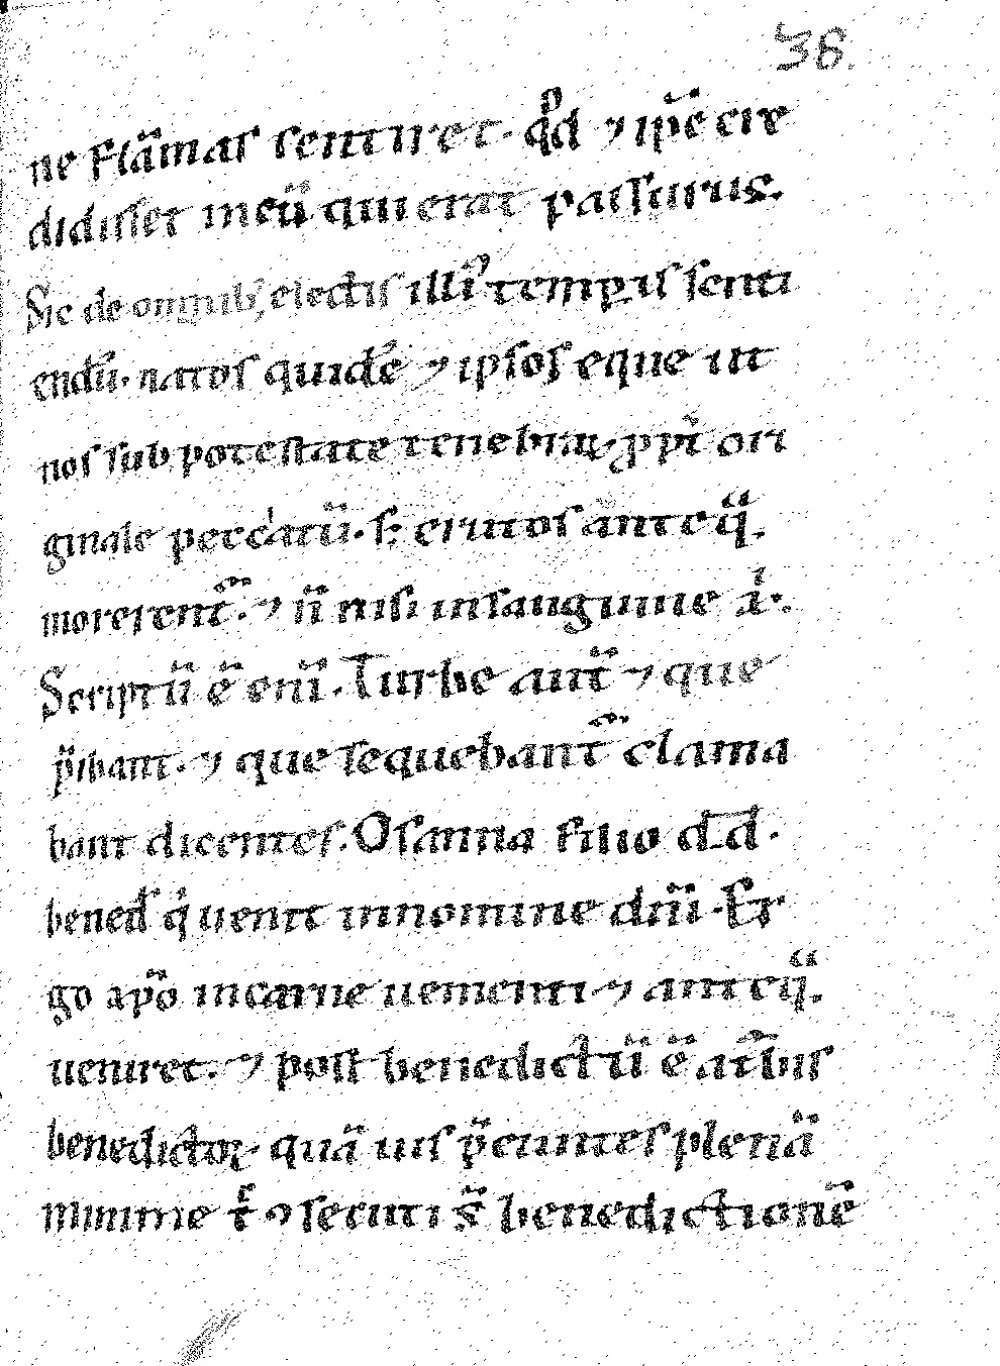 38.
ne flãmas sentiret. qd ⁊ ip̃e cre
didisset in eũ qui erat passurus.
Sic de omnib; electis illiꝰ temꝑis senti
endũ. natos quidẽ ⁊ ipsos eque ut
nos sub potestate tenebraꝝ ꝓpt̃ ori
ginale peccatũ. s; erutos anteq̃.
morerent̃. ⁊ ñ nisi in sanguine
Scriptũ ẽ eni. Turbe aut̃ ⁊ que
p̃ibant. ⁊ que sequebant̃ clama
bant dicentes. Osanna filio d̃d.
bened q̇ uenit in nomine dñi. Er
go xp̃o in carne uenienti ⁊ anteq̃.
ueniret. ⁊ post benedictũ ẽ a t̃bis
benedictoꝝ. quã uis p̃euntes plenã
minime ⁊ secuti s̃ benedictionẽ